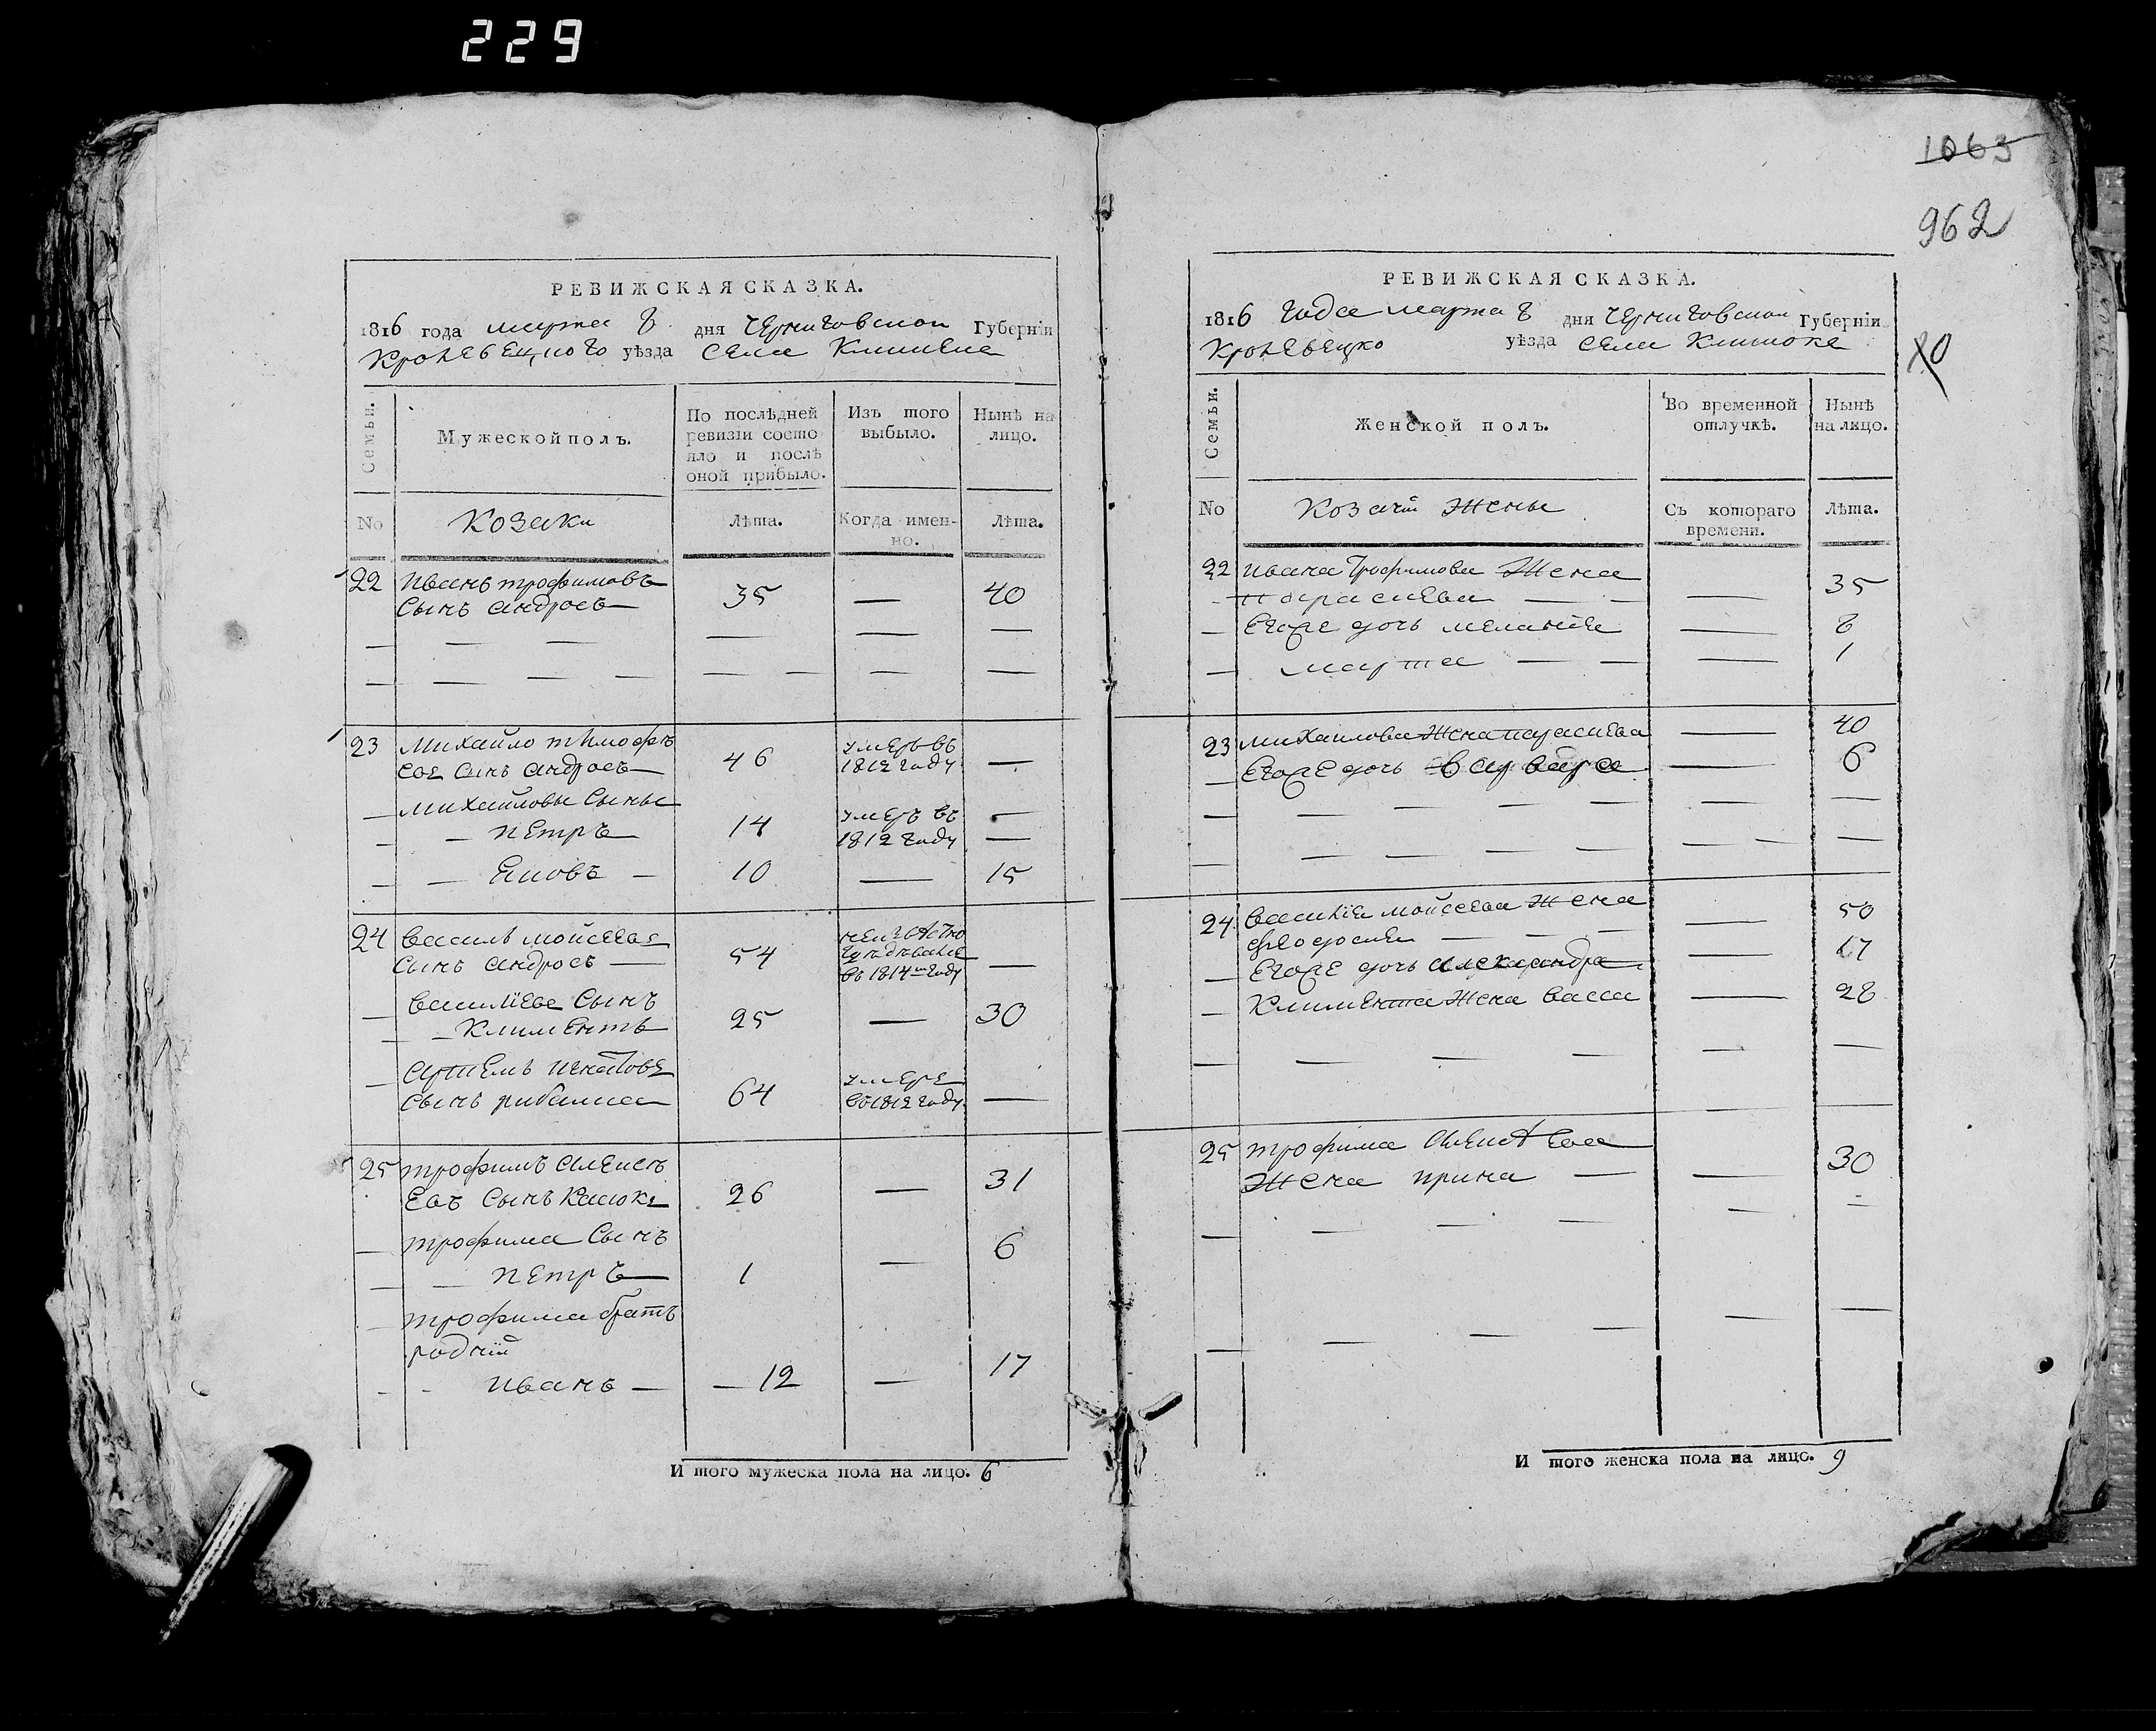 229
1063
962
РЕВИЖСКАЯ СКАЗКА.
1816 года марта 8 дня Черниговской Губерніи
Кролевецкого уѣзда села
Семьи.
Мужеской полъ.
По послѣдней
ревизіи состо
яло и послѣ
оной прибыло.
Изъ того
выбыло.
Нынѣ на
лицо.
No
Козаки
Лѣта.
Когда имен-
но.
Лѣта.
22 Иванъ трофимовъ
сынъ андросъ 35 — 40
23 Михайло тимофѣ
евъ сынъ андросъ 46 умеръ въ 1812 году —
Михайловы сыны
— петръ 14 умеръ въ 1812 году —
— Яковъ — 10 — 15
24 Василь мойсеевъ
сынъ андросъ 54 въ 1814 году —
Василіевъ сынъ
— Климентъ 25 — 30
Артемъ игнатовъ
сынъ рибалка 64 умеръ въ 1812 году —
25 трофимъ алексѣ
евъ сынъ 26 — 31
трофима сынъ
— петръ 1 — 6
трофима братъ
родній
— иванъ — 12 — 17
И того мужеска пола на лицо. 6
РЕВИЖСКАЯ СКАЗКА.
1816 года марта 8 дня Черниговской Губерніи
Кролевецко уѣзда села
80
Семьи.
Женской полъ.
Во временной
отлучкѣ.
Нынѣ
на лицо.
No
Козачіи жены
Съ котораго
времени.
Лѣта.
22 ивана Трофимова жена
параскева — 35
Егоже дочь меланія — 8
марта — 1
23 михаилова жена параскева — 40
Егоже дочь варвара — 6
24 василія мойсеева жена
феодосия — 50
Егоже дочь александра — 17
Климента жена васса — 28
25 трофима алексѣева
жена ирина — 30
И того женска пола на лицо. 9